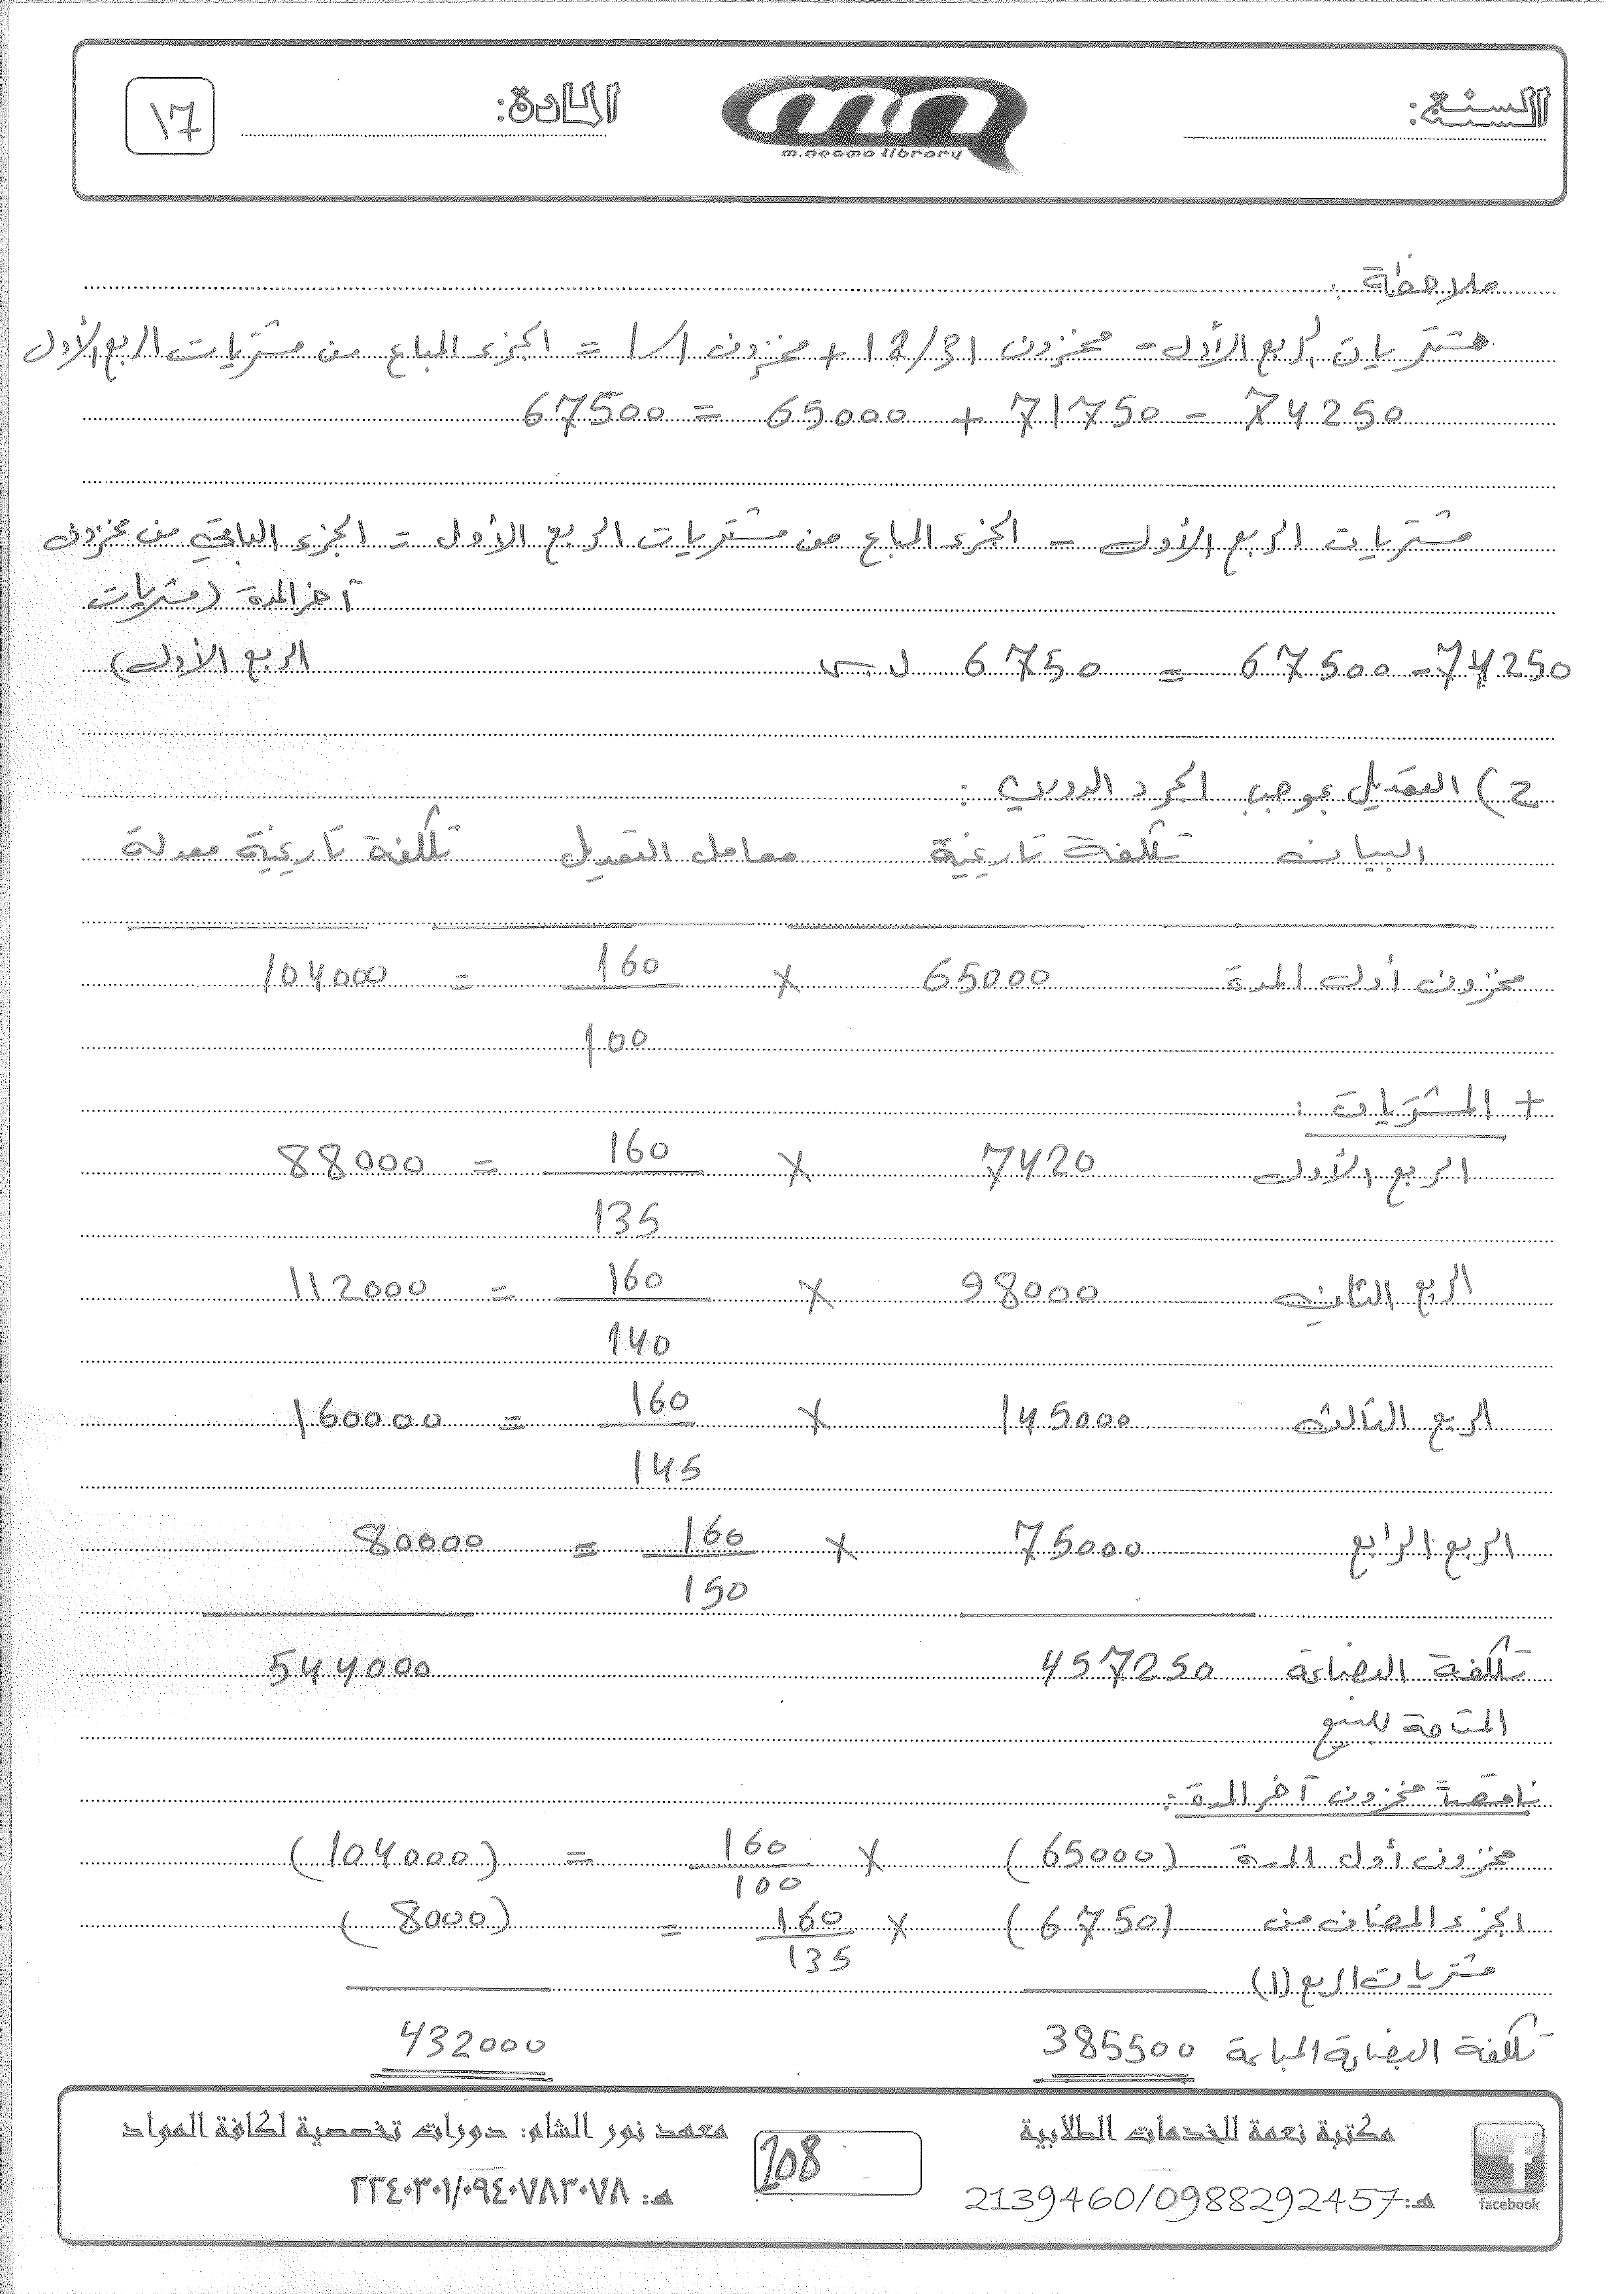 السنة:
المادة:
١٦
m.neama library
ملاحظة :
مشتريات الربع الأول - مخزون 12/31 + مخزون 1/1 = الجزء المباع من مشتريات الربع الأول
74250 - 71750 + 65000 = 67500
مشتريات الربع الأول - الجزء المباع من مشتريات الربع الأول = الجزء الباقي من مخزون
آخر المدة (مشتريات
الربع الأول)
74250 - 67500 = 6750 ل.س
2) التعديل بموجب الجرد الدوري :
البيان تكلفة تاريخية معامل التعديل تكلفة تاريخية معدلة
مخزون أول المدة 65000 × 160 = 104000
100
+ المشتريات :
الربع الأول 7420 × 160 = 88000
135
الربع الثاني 98000 × 160 = 112000
140
الربع الثالث 145000 × 160 = 160000
145
الربع الرابع 75000 × 160 = 80000
150
تكلفة البضاعة 457250 544000
المتاحة للبيع
ناقصاً مخزون آخر المدة :
مخزون أول المدة (65000) × 160 = (104000)
100
الجزء المضاف من (6750) × 160 = (8000)
135
مشتريات الربع (1)
تكلفة البضاعة المباعة 385500 432000
مكتبة نعمة للخدمات الطلابية
هـ: 2139460/0988292457
facebook
208
معهد نور الشام: دورات تخصصية لكافة المواد
هـ: ٢٢٤٠٣٠١/٠٩٤٠٧٨٣٠٧٨